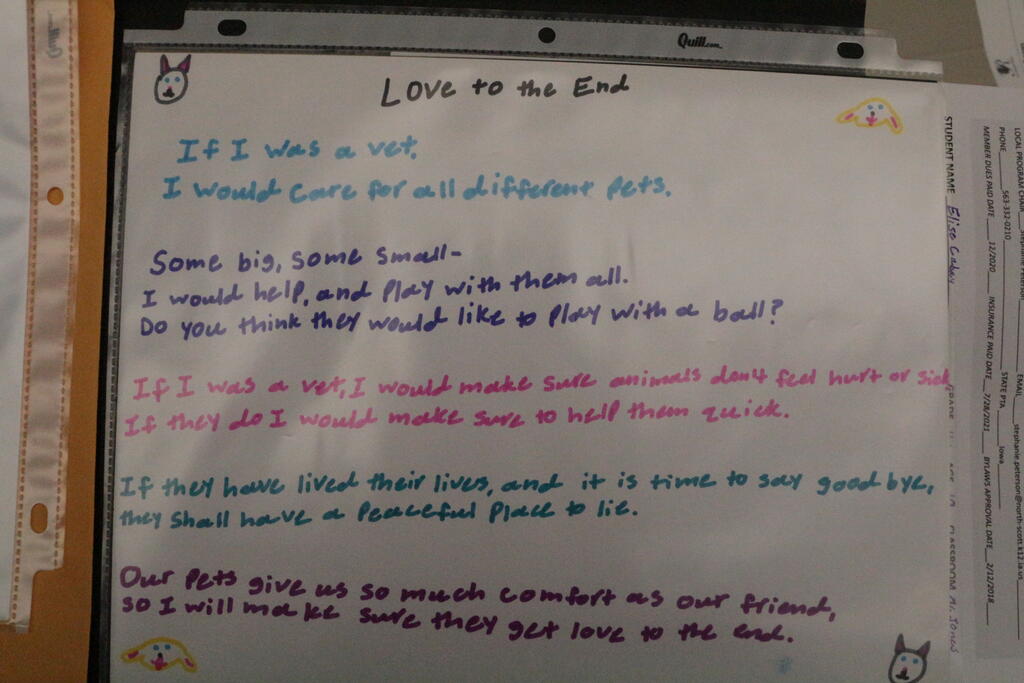 Quill.com
Love to the End
If I was a vet,
I would care for all different pets.
Some big, some small-
I would help, and play with them all.
Do you think they would like to play with a ball?
If I was a vet, I would make sure animals don't feel hurt or sick
If they do I would make sure to help them quick.
If they have lived their lives, and it is time to say good bye,
they shall have a peaceful place to lie.
Our pets give us so much comfort as our friend,
so I will make sure they get love to the end.
STUDENT NAME Elise
MEMBER DUES PAID DATE 12/2020 INSURANCE PAID DATE 7/28/2021 BYLAWS APPROVAL DATE 2/12/2018
PHONE 563-332-0210 STATE PTA Iowa
LOCAL PROGRAM CHAIR EMAIL stephanie.peterson@north-scott.k12.ia.us